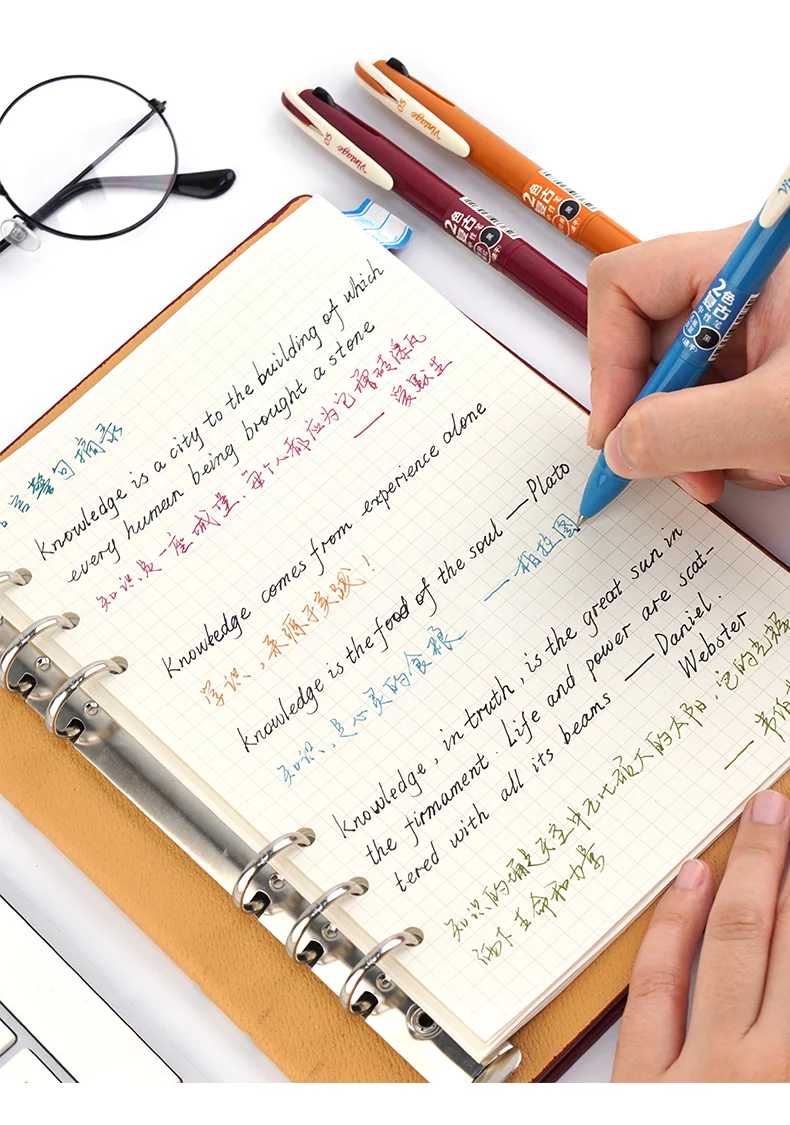 言警句摘录
Knowledge is a city to the building of which
every human being brought a stone
知识是一座城堡,每个人都应为它增砖添瓦
— 爱默生
Knowledge comes from experience alone
学识,来源于实践!
Knowledge is the food of the soul — Plato
知识,是心灵的食粮 — 柏拉图
Knowledge, in truth, is the great sun in
the firmament. Life and power are scat-
tered with all its beams — Daniel.
Webster
知识的确是天空中无比硕大的太阳,它的光
洒下生命和力量
Vintage 05
2色复古
中性笔
黑
Vintage 05
2色复古
中性笔
黑
2色复古
中性笔
黑